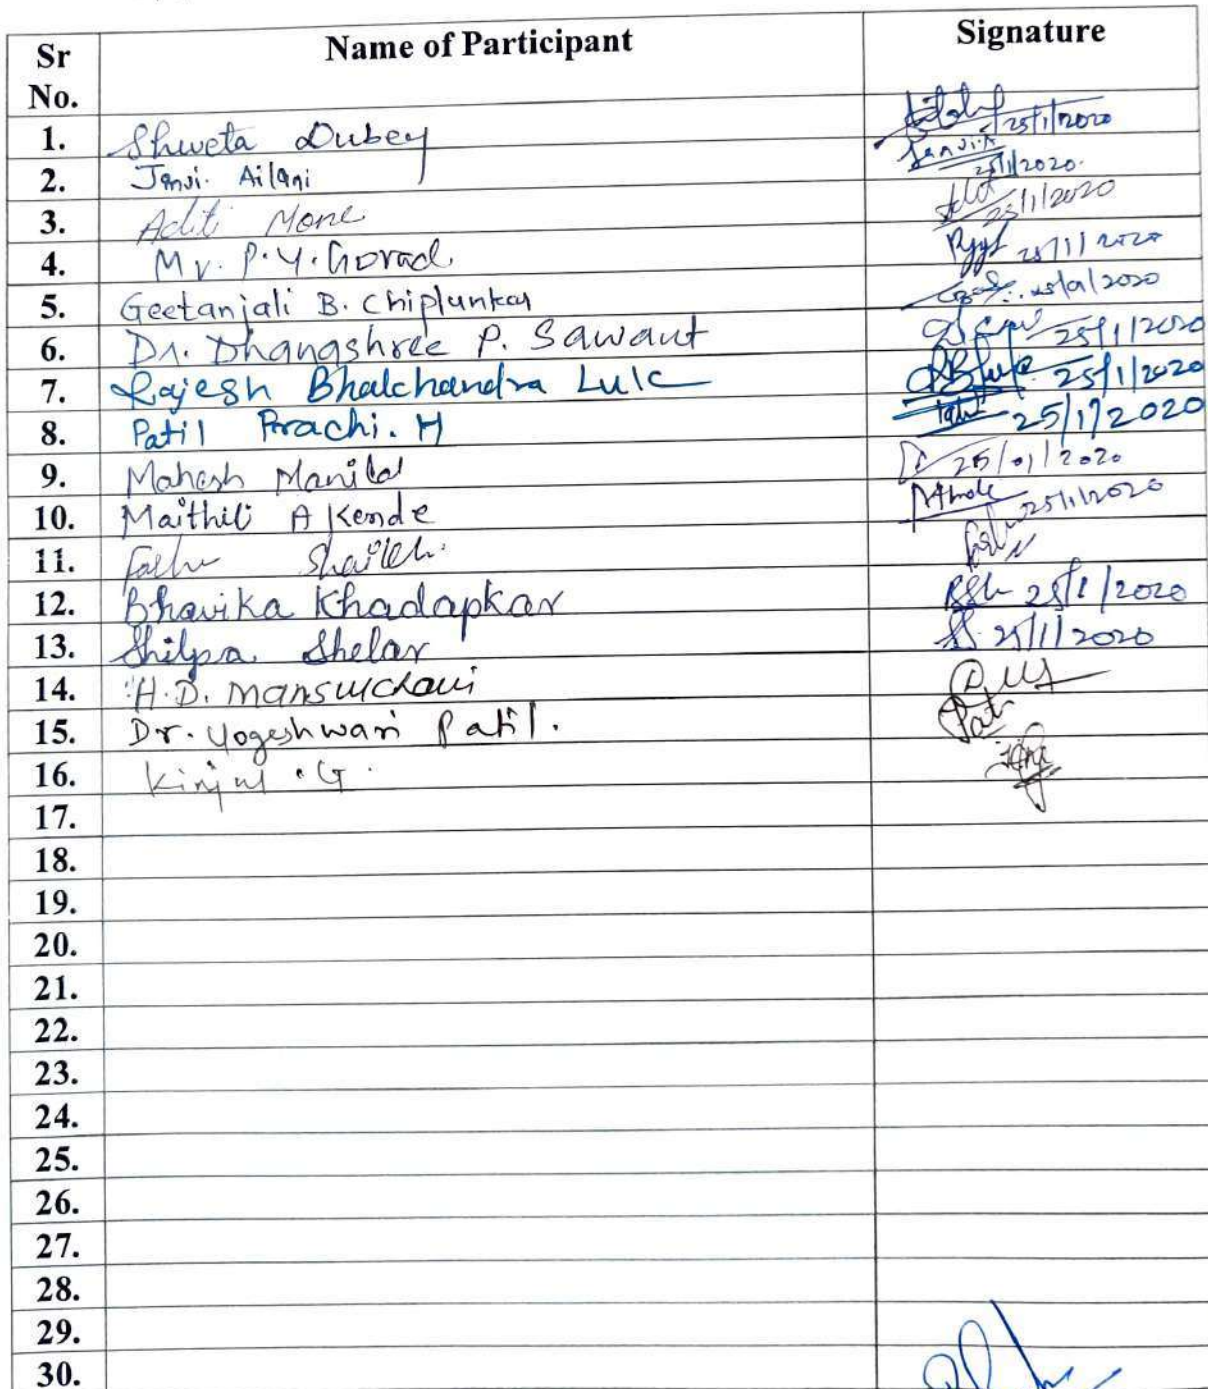 Sr No. Name of Participant Signature
1. Shweta Dubey 25/1/2020
2. Janvi. Ailani Janvi.A 25/1/2020.
3. Aditi Mone 25/1/2020
4. Mr. P. Y. Gorad 25/1/2020
5. Geetanjali B. Chiplunkar 25/01/2020
6. Dr. Dhanashree P. Sawant 25/1/2020
7. Rajesh Bhalchandra Lule 25/1/2020
8. Patil Prachi. M 25/1/2020
9. Mahesh 25/01/2020
10. Maithili A Kende 25/1/2020
11. Shaikh.
12. Bhavika Khadapkar 25/1/2020
13. Shilpa Shelar 25/1/2020
14. H.D.
15. Dr. Yogeshwari Patil.
16. Kinjal . G.
17.
18.
19.
20.
21.
22.
23.
24.
25.
26.
27.
28.
29.
30.